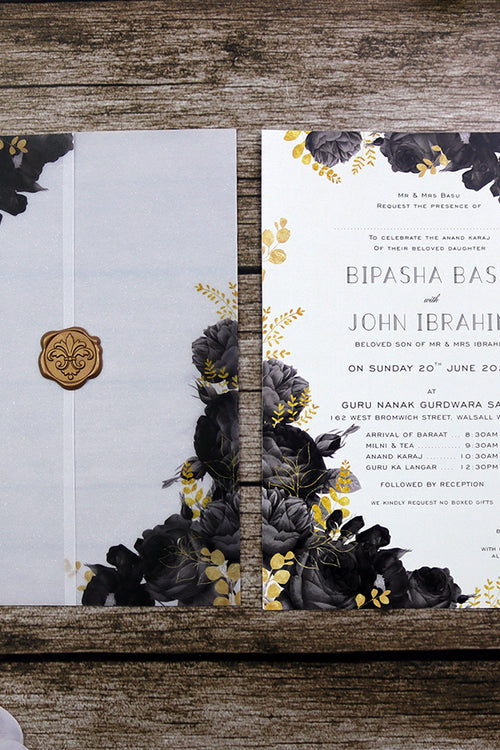 Mr & Mrs Basu
Request the presence of
To celebrate the anand karaj
Of their beloved daughter
BIPASHA BAS
with
JOHN IBRAHI
beloved son of Mr & Mrs Ibrahi
on Sunday 20th June 202
at
Guru Nanak Gurdwara Sa
162 West Bromwich Street, Walsall W
Arrival of Baraat ... 8:30am
Milni & Tea ............. 9:30am
Anand Karaj ......... 10:30am
Guru Ka Langar .... 12:30pm
Followed by Reception
We kindly request no boxed gifts
With